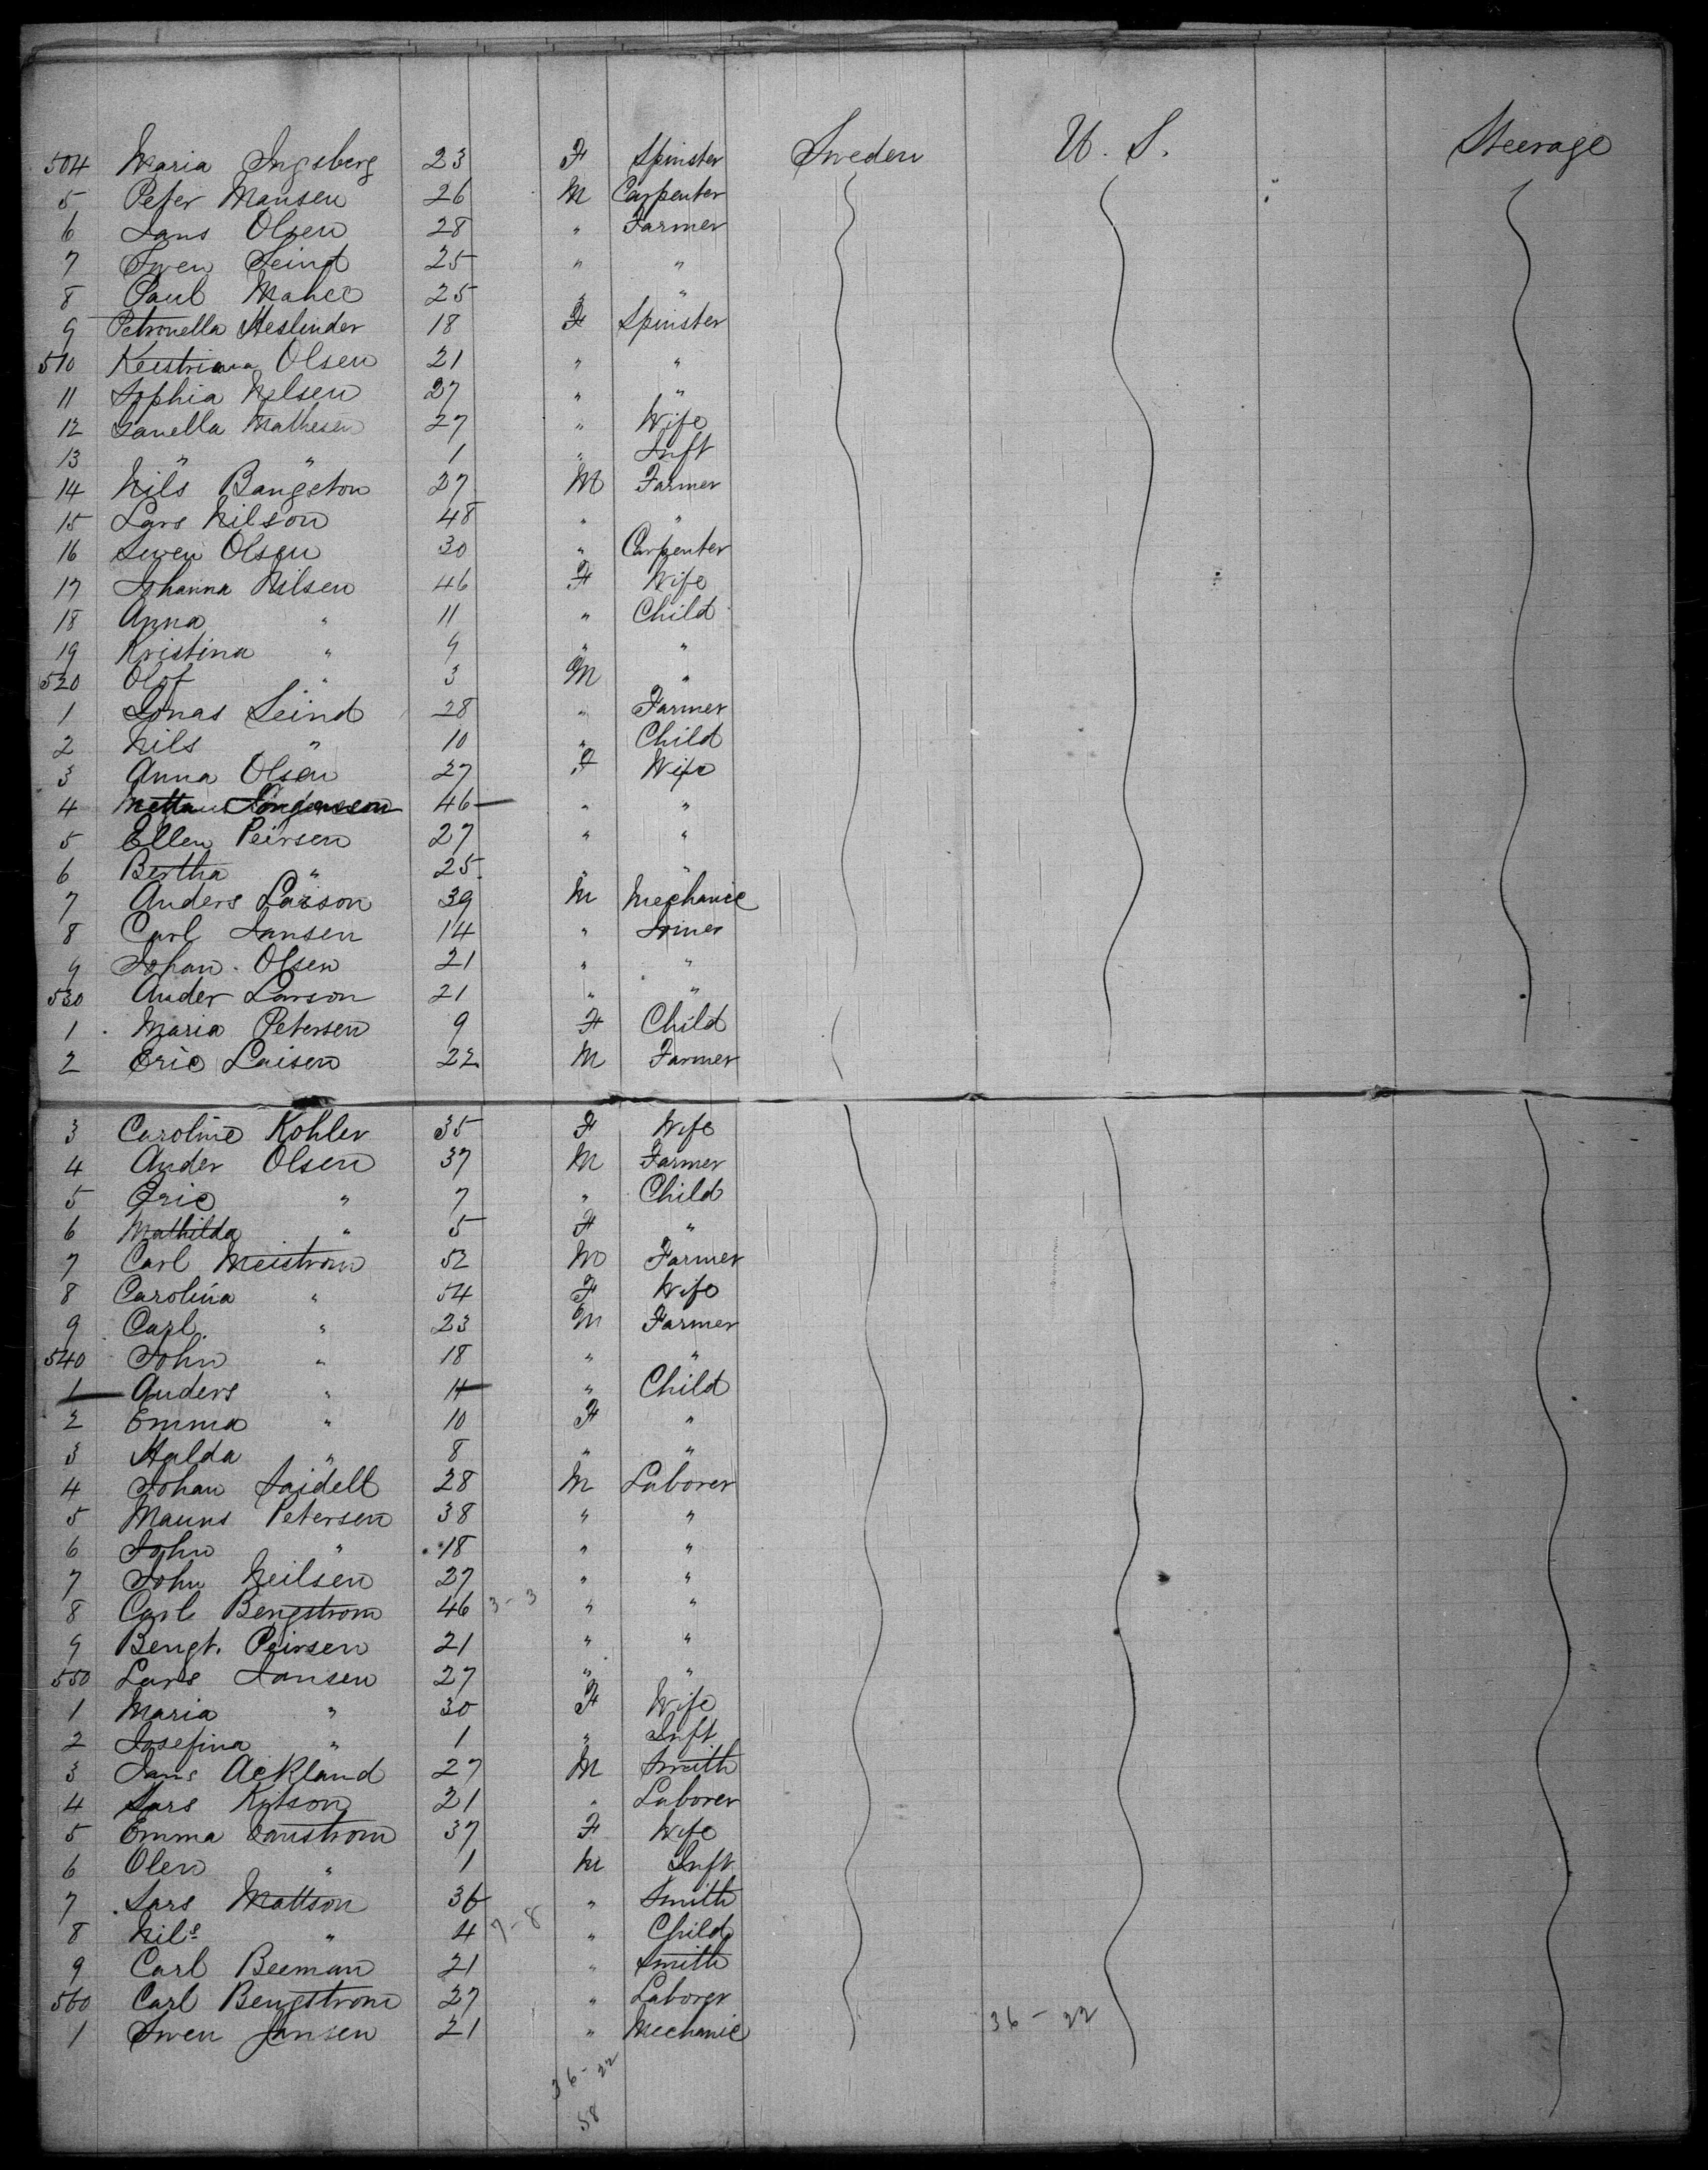 504 Maria Ingsberg 23 F Spinster Sweden U. S. Steerage
5 Peter Mansen 26 M Carpenter
6 Jans Olsen 28 " Farmer
7 Swen Seind 25 " "
8 Paul 25 " "
9 Petronella Heslinder 18 F Spinster
510 Olsen 21 " "
11 Sophia Nelsen 27 " "
12 Janella Mathesen 27 " Wife
13 " " 1 " Inft
14 Nils Bangston 27 M Farmer
15 Lars Nilson 48 " "
16 Swen Olsen 30 " Carpenter
17 Johanna Nilsen 46 F Wife
18 Anna " 11 " Child
19 Kristina " 9 " "
520 Olof " 3 M "
1 Jonas Seind 28 " Farmer
2 Nils " 10 " Child
3 Anna Olsen 27 F Wife
4 46 " "
5 Ellen Peirsen 27 " "
6 Bertha " 25 " "
7 Anders Larson 39 M Mechanic
8 Carl Jansen 14 " Joiner
9 Johan Olsen 21 " "
530 Ander Larson 21 " "
1 Maria Petersen 9 F Child
2 Eric Laisen 22 M Farmer
3 Caroline Kohler 35 F Wife
4 Ander Olsen 37 M Farmer
5 Eric " 7 " Child
6 Mathilda " 5 F "
7 Carl Meistrom 52 M Farmer
8 Carolina " 54 F Wife
9 Carl " 23 M Farmer
540 John " 18 " "
1 Anders " 11 " Child
2 Emma " 10 F "
3 Halda " 8 " "
4 Johan Saidell 28 M Laborer
5 Mauns Petersen 38 " "
6 John " 18 " "
7 John Neilsen 27 " "
8 Carl Bengstrom 46 3-3 " "
9 Bengt. Peirsen 21 " "
550 Lars Jansen 27 " "
1 Maria " 30 F Wife
2 Josefina " 1 " Inft
3 Jans Ackland 27 M Smith
4 Lars Kutson 21 " Laborer
5 Emma 37 F Wife
6 Olen " 1 M Inft
7 Lars Mattson 36 " Smith
8 Nils " 4 7-8 " Child
9 Carl Beeman 21 " Smith
560 Carl Bengstrom 27 " Laborer
1 Swen Jansen 21 " Mechanic 36-22
36-22
58